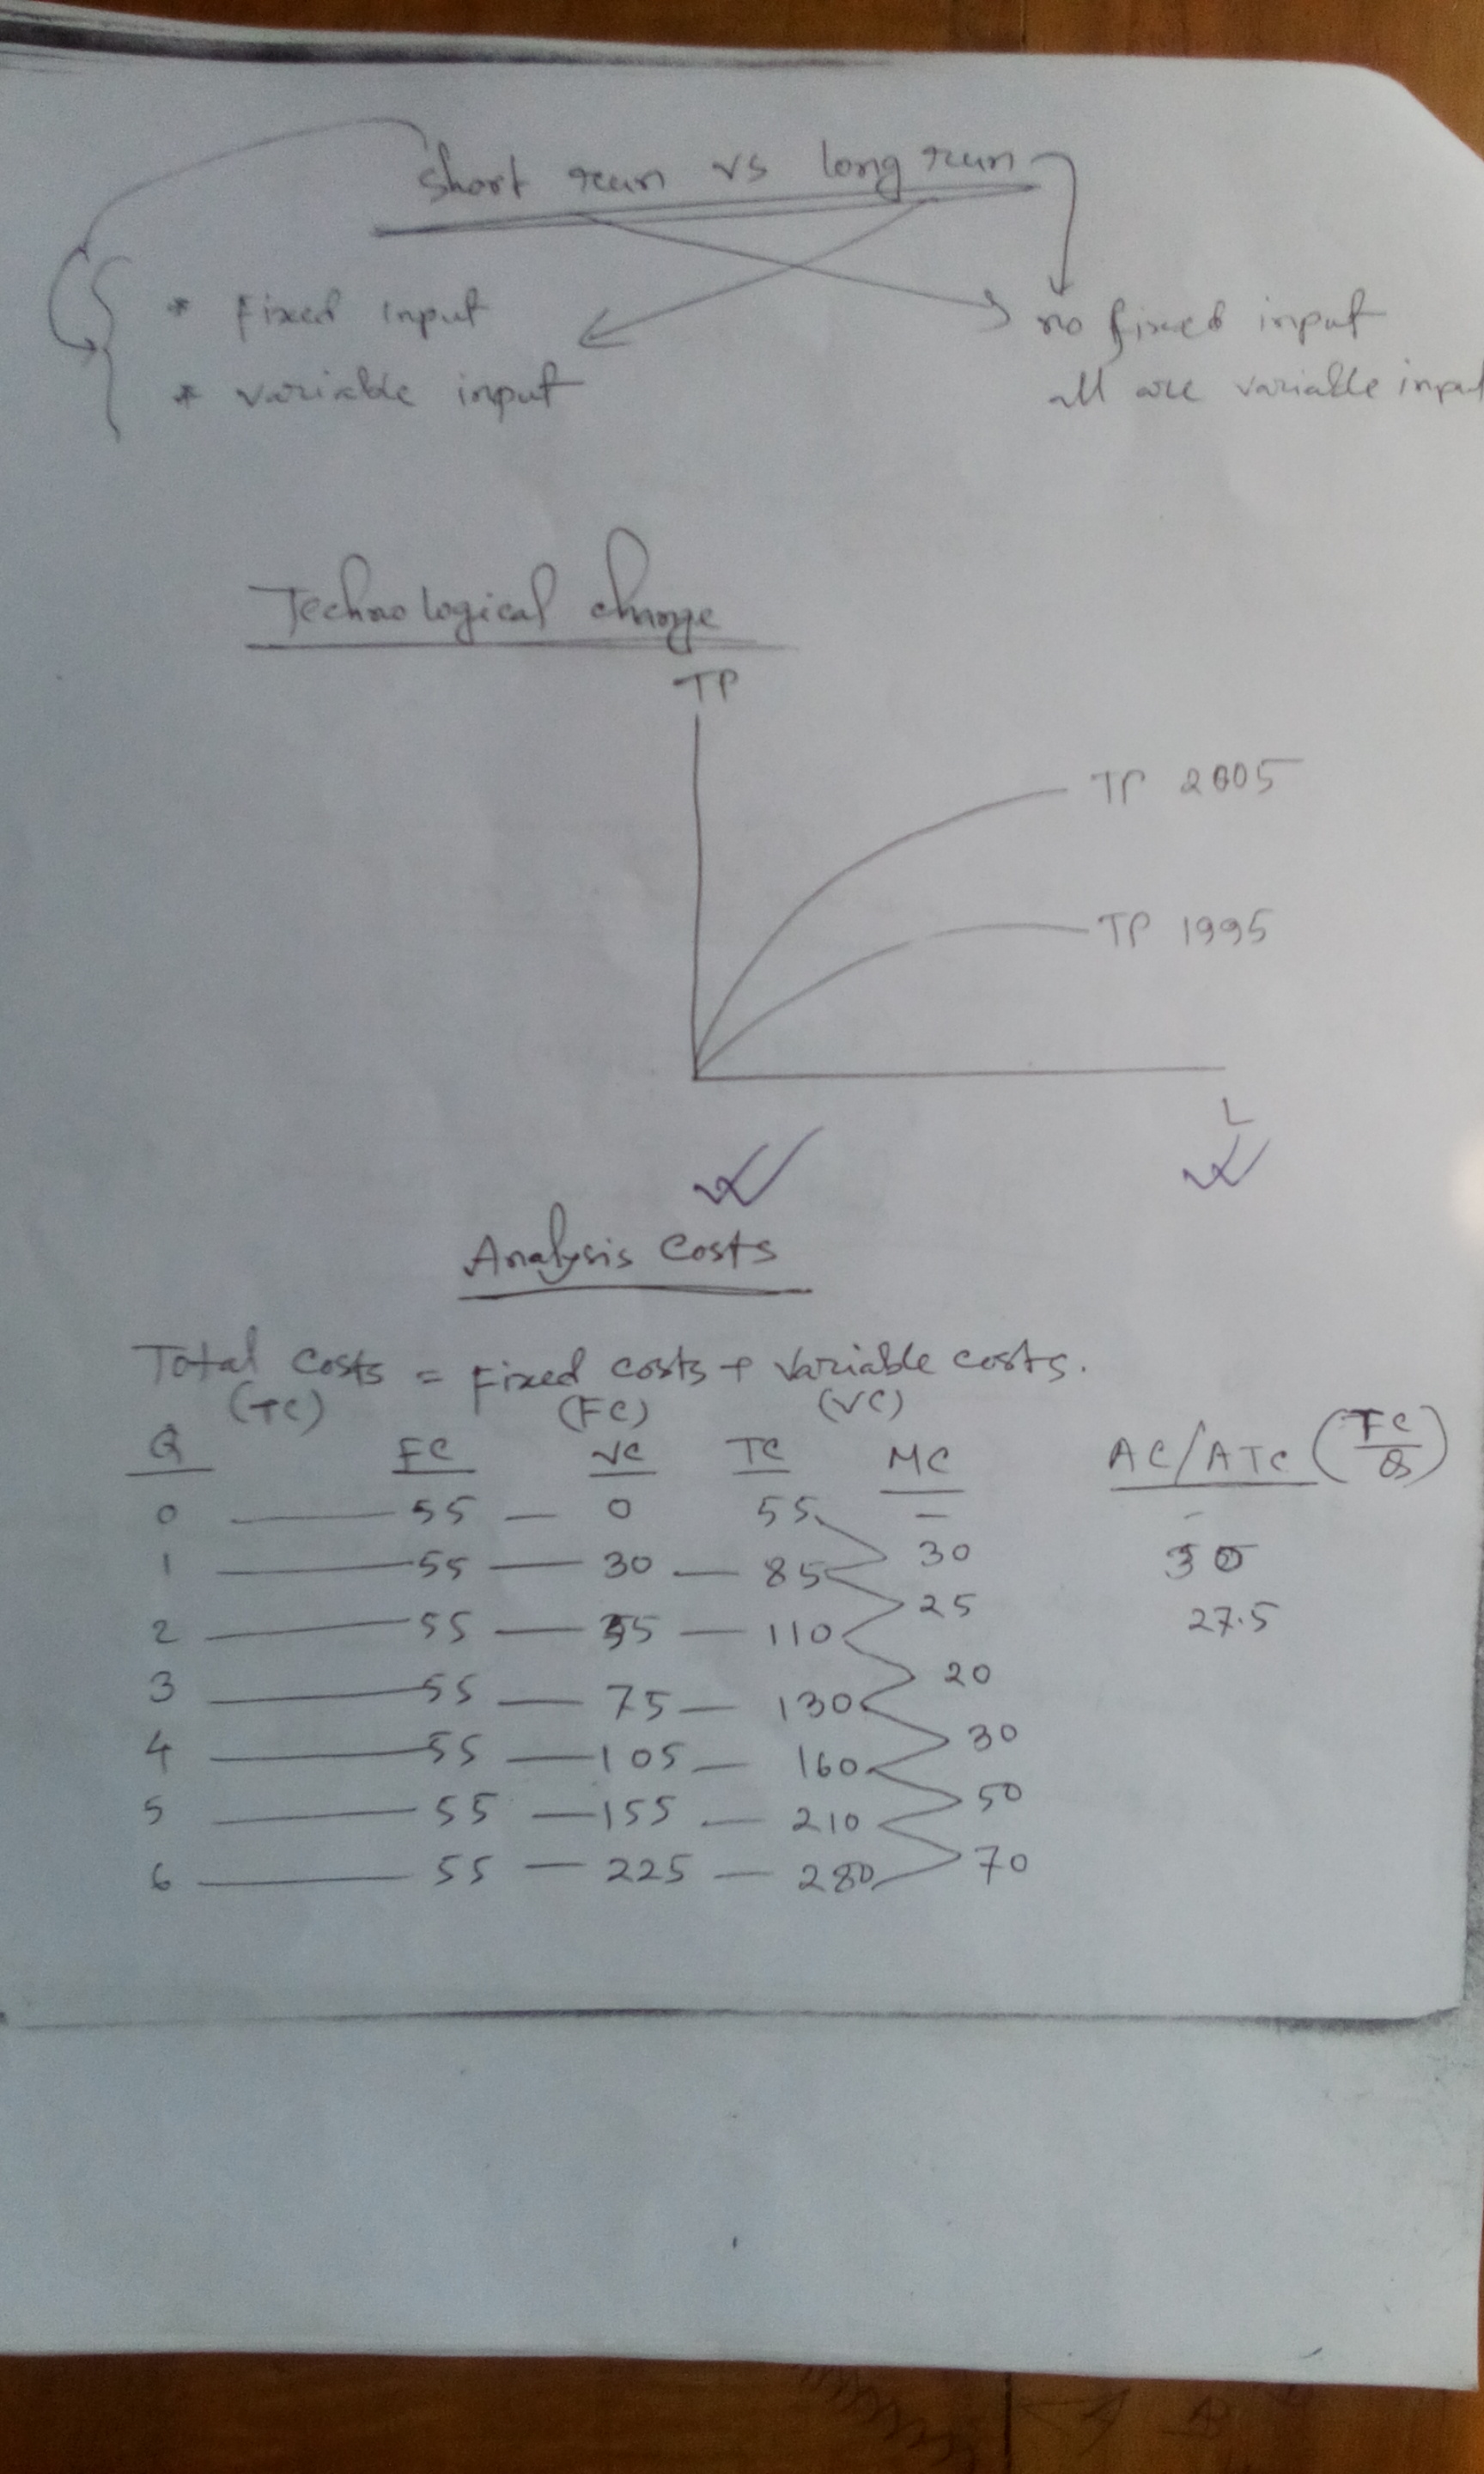 short run vs long run
* fixed input
* variable input
no fixed input
all are variable input
Technological change
TP
TP 2005
TP 1995
L
Analysis Costs
Total costs = Fixed costs + Variable costs.
(TC) (FC) (VC)
Q FC VC TC MC AC/ATC (TC/Q)
0 — 55 — 0 55 –
1 — 55 — 30 — 85 30 30
2 — 55 — 55 — 110 25 27.5
3 — 55 — 75 — 130 20
4 — 55 — 105 — 160 30
5 — 55 — 155 — 210 50
6 — 55 — 225 — 280 70